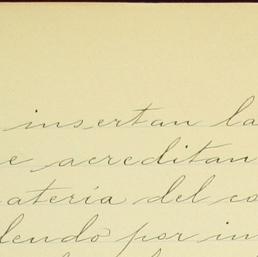 insertan la
e acreditan
ateria del co
lendo por in